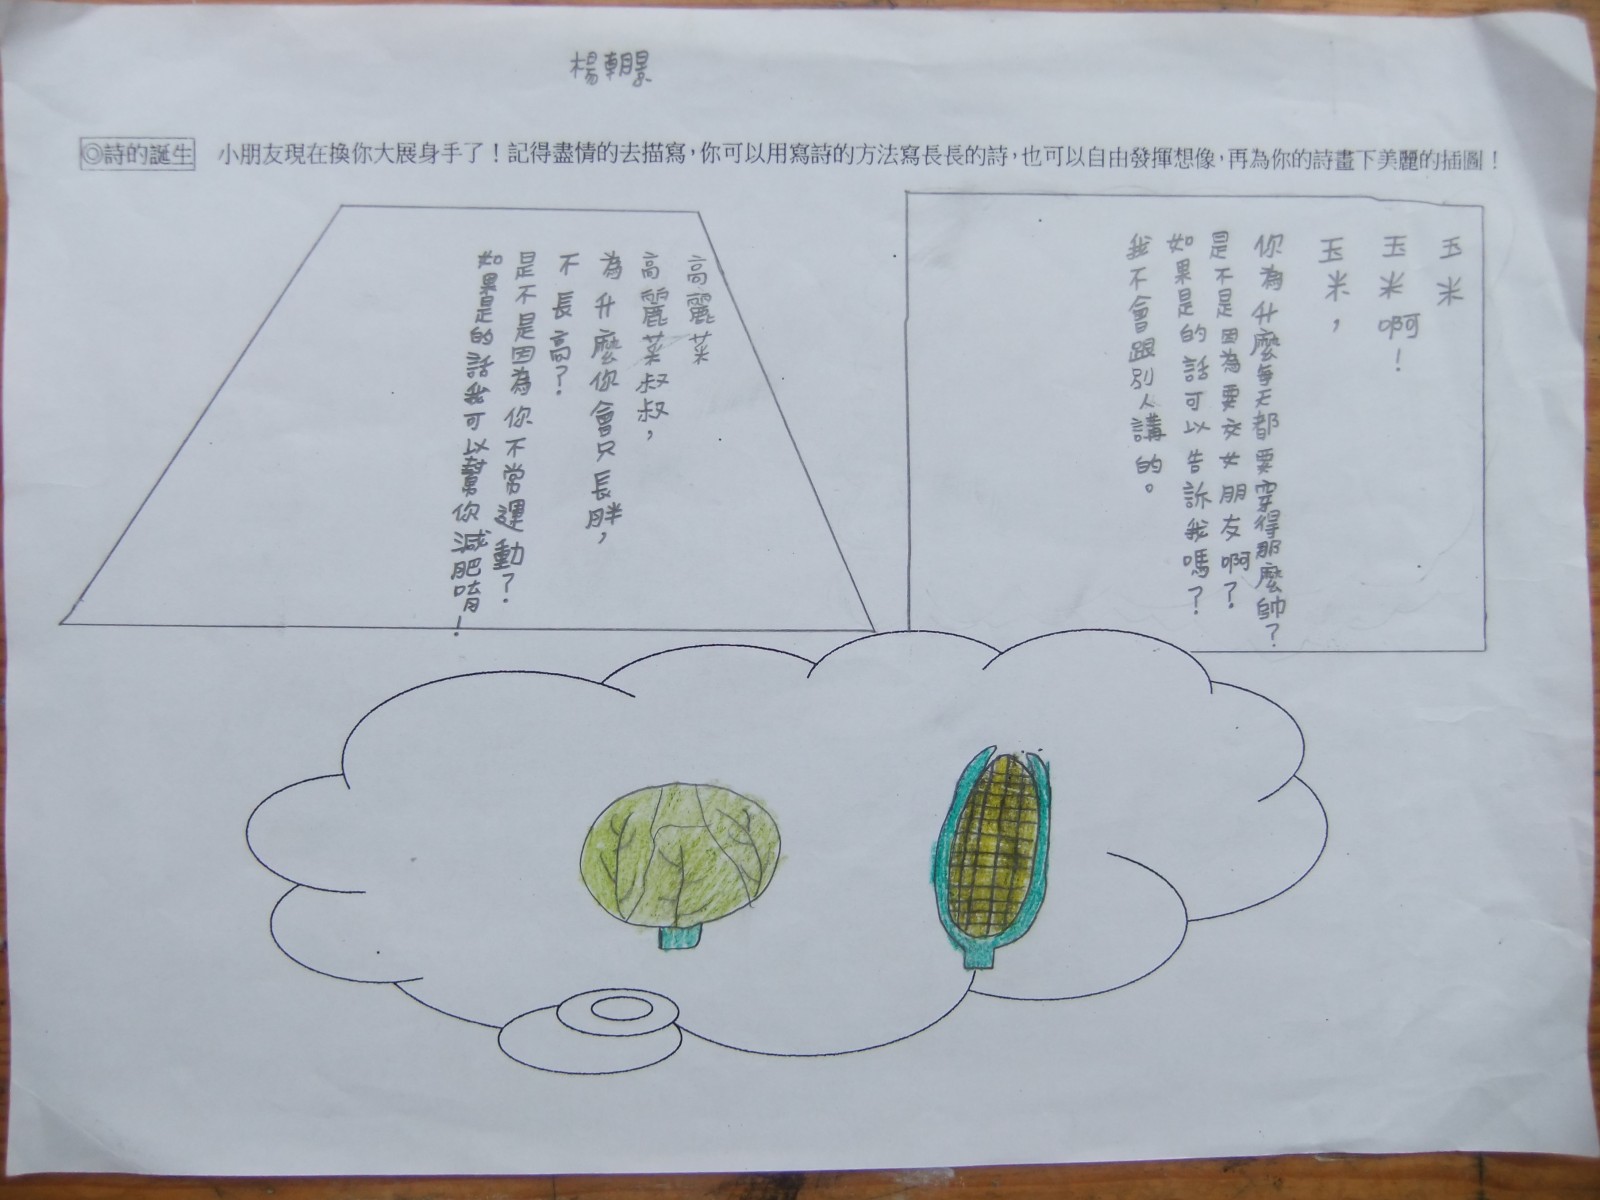 楊朝景
◎詩的誕生 小朋友現在換你大展身手了！記得盡情的去描寫，你可以用寫詩的方法寫長長的詩，也可以自由發揮想像，再為你的詩畫下美麗的插圖！
玉米
玉米啊！
玉米，
你為什麼每天都要穿得那麼帥？
是不是因為要交女朋友啊？
如果是的話可以告訴我嗎？
我不會跟別人講的。
高麗菜
高麗菜叔叔，
為什麼你會只長胖，
不長高？
是不是因為你不常運動？
如果是的話我可以幫你減肥唷！